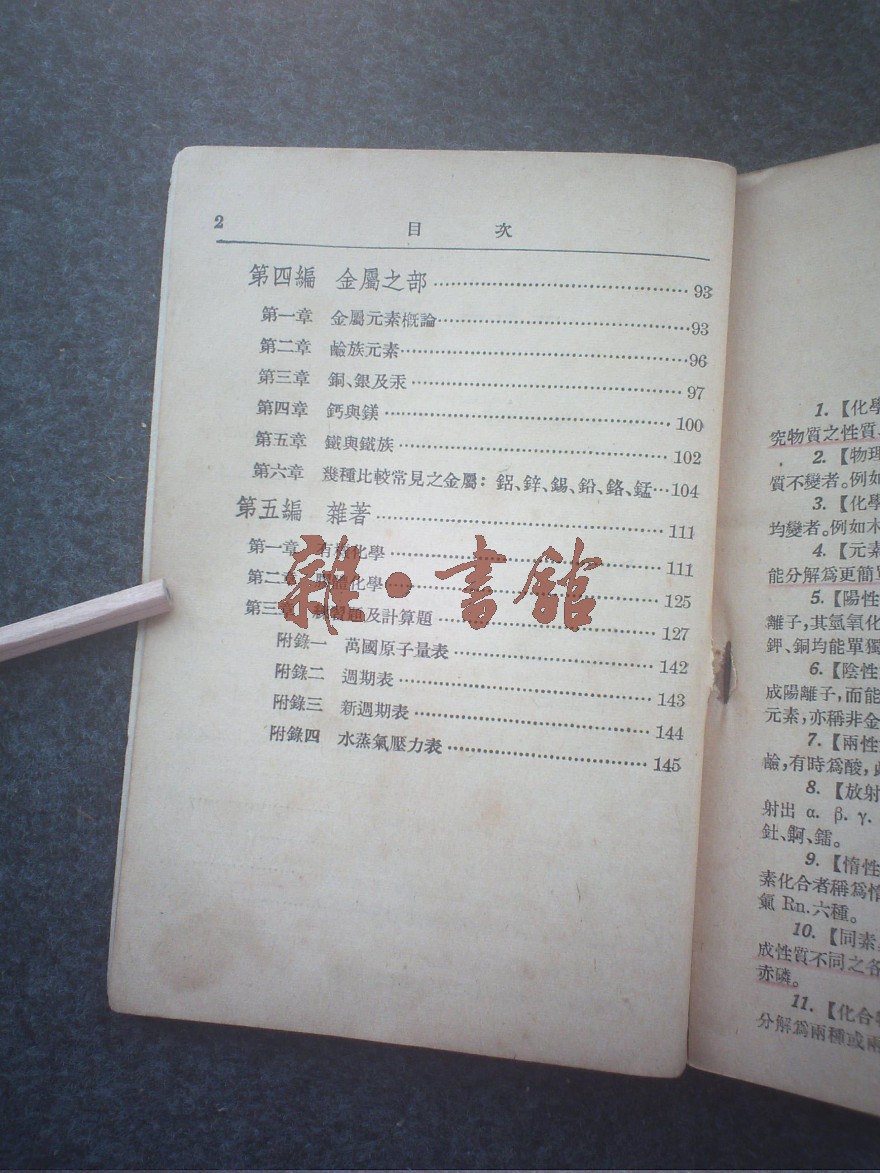 2
目 次
第四編 金屬之部 93
第一章 金屬元素概論 93
第二章 鹼族元素 96
第三章 銅、銀及汞 97
第四章 鈣與鎂 100
第五章 鐵與鐵族 102
第六章 幾種比較常見之金屬：鋁、鋅、錫、鉛、鉻、錳 104
第五編 雜著 111
第一章 有機化學 111
第二章 膠體化學 125
第三章 練習題及計算題 127
附錄一 萬國原子量表 142
附錄二 週期表 143
附錄三 新週期表 144
附錄四 水蒸氣壓力表 145
雜·書館
1.【化學
究物質之性質、
2.【物理
質不變者。例如
3.【化學
均變者。例如木
4.【元素
能分解爲更簡單
5.【陽性
離子，其氫氧化
鉀、銅均能單獨
6.【陰性
成陽離子，而能
元素，亦稱非金
7.【兩性
鹼，有時爲酸，
8.【放射
射出 α. β. γ.
釷、錒、鐳。
9.【惰性
素化合者稱爲惰
氡 Rn.六種。
10.【同素
成性質不同之各
赤磷。
11.【化合物
分解爲兩種或兩